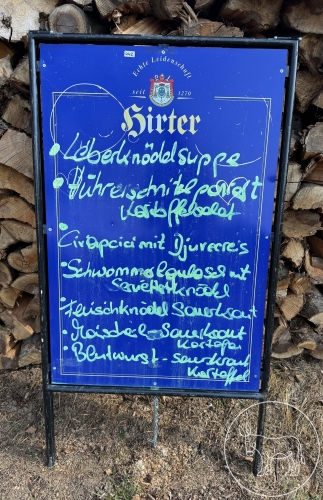 Echte Leidenschaft
seit 1270
Hirter
• Leberknödelsuppe
• Hühnerschnitzel paniert
Kartoffelsalat
• Civapcici mit Djuvecreis
• Schwammerlgulasch mit
Serviettenknödl
• Fleischknödl Sauerkraut
• Maischerl - Sauerkraut
Kartoffel
• Blutwurst - Sauerkraut
Kartoffel